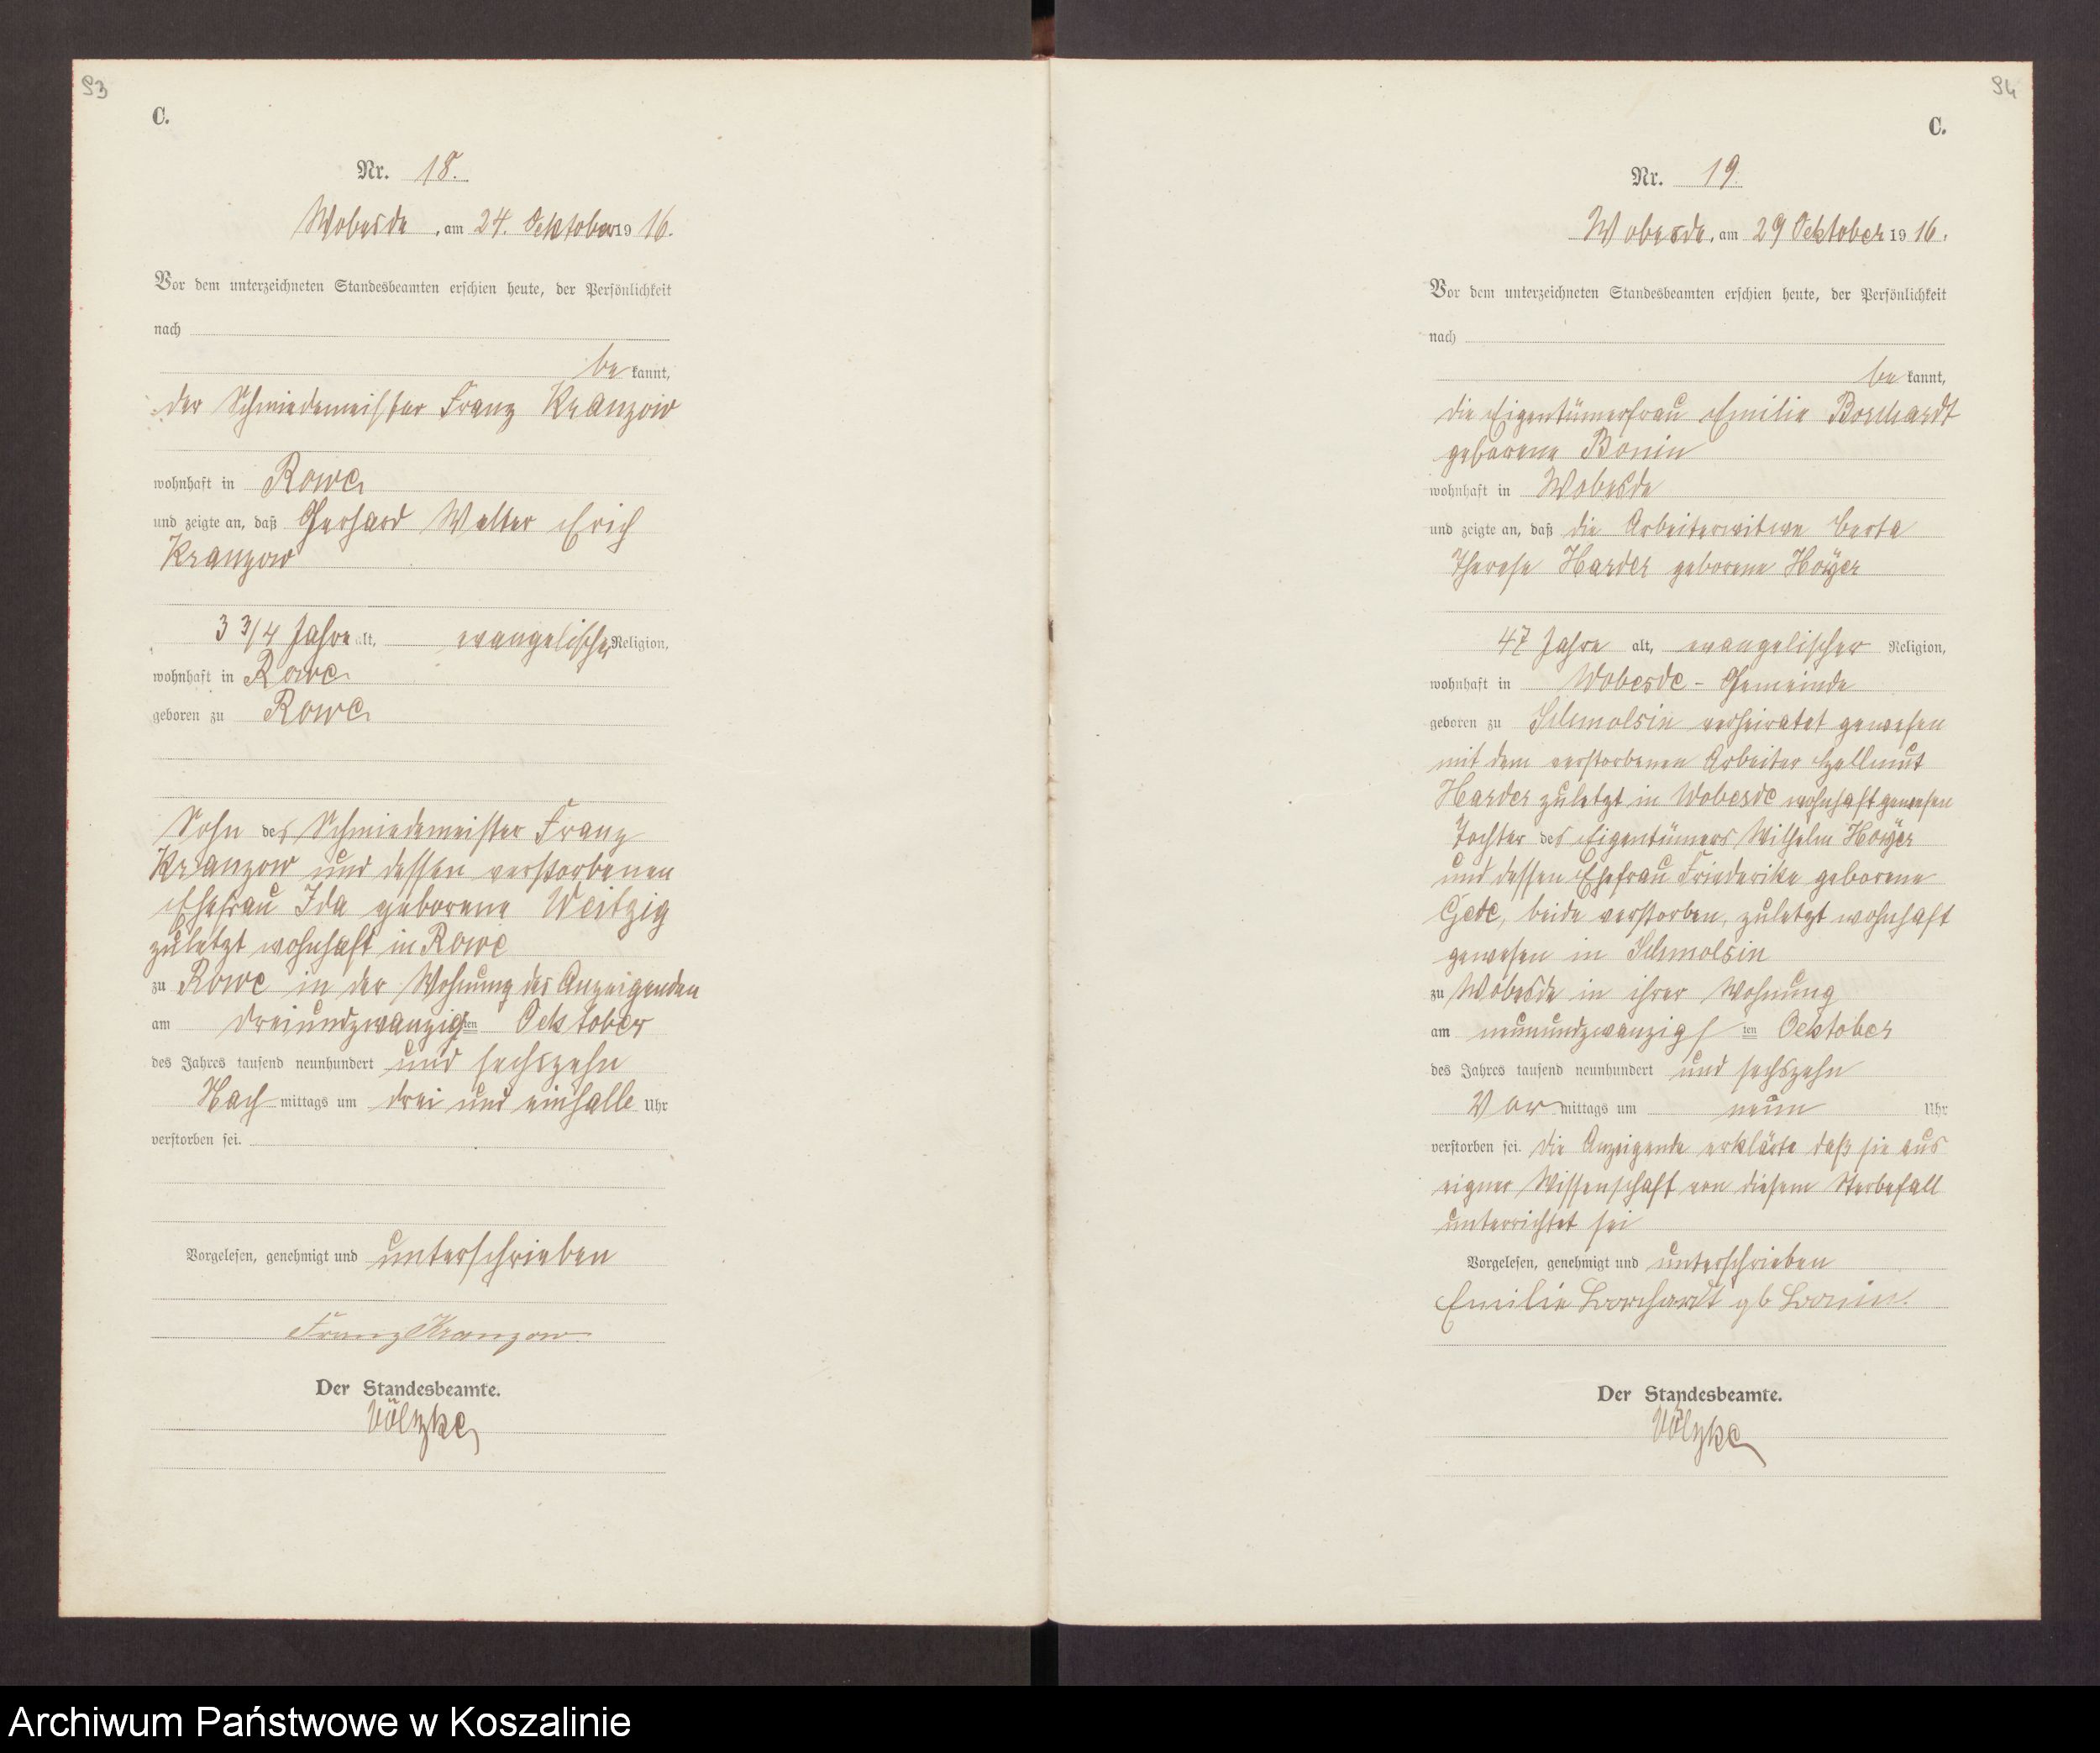 93
C.
Nr. 18.
Wobesde, am 24. Oektober 1916.
Vor dem unterzeichneten Standesbeamten erschien heute, der Persönlichkeit
nach
be kannt,
der Schmiedemeister Franz Kranzow
wohnhaft in Rowe
und zeigte an, daß Gerhard Walter Erich
Kranzow
3 3/4 Jahre alt, evangelischer Religion,
wohnhaft in Rowe
geboren zu Rowe
Sohn des Schmiedemeister Franz
Kranzow und dessen verstorbenen
Ehefrau Ida geborene Weitzig
zuletzt wohnhaft in Rowe
zu Rowe in der Wohnung des Anzeigenden
am dreiundzwanzigsten Oektober
des Jahres tausend neunhundert und sechszehn
Nach mittags um drei und einhalb Uhr
verstorben sei.
Vorgelesen, genehmigt und unterschrieben
Franz Kranzow
Der Standesbeamte.
Völtzke
94
C.
Nr. 19.
Wobesde, am 29 Oektober 1916.
Vor dem unterzeichneten Standesbeamten erschien heute, der Persönlichkeit
nach
be kannt,
die Eigentümerfrau Emilie Borchardt
geborene Bonin
wohnhaft in Wobesde
und zeigte an, daß die Arbeiterwitwe Berta
Therese Harder geborene Höyer
47 Jahre alt, evangelischer Religion,
wohnhaft in Wobesde - Gemeinde
geboren zu Schmolsin verheiratet gewesen
mit dem verstorbenen Arbeiter Hellmut
Harder zuletzt in Wobesde wohnhaft gewesen
Tochter des Eigentümers Wilhelm Höyer
und dessen Ehefrau Friederike geborene
Gede, beide verstorben, zuletzt wohnhaft
gewesen in Schmolsin
zu Wobesde in ihrer Wohnung
am neunundzwanzigsten Oektober
des Jahres tausend neunhundert und sechszehn
Vor mittags um neun Uhr
verstorben sei. Die Anzeigende erklärte daß sie aus
eigner Wissenschaft von diesem Sterbefall
unterrichtet sei
Vorgelesen, genehmigt und unterschrieben
Emilie Borchardt gb Bonin.
Der Standesbeamte.
Völtzke
Archiwum Państwowe w Koszalinie